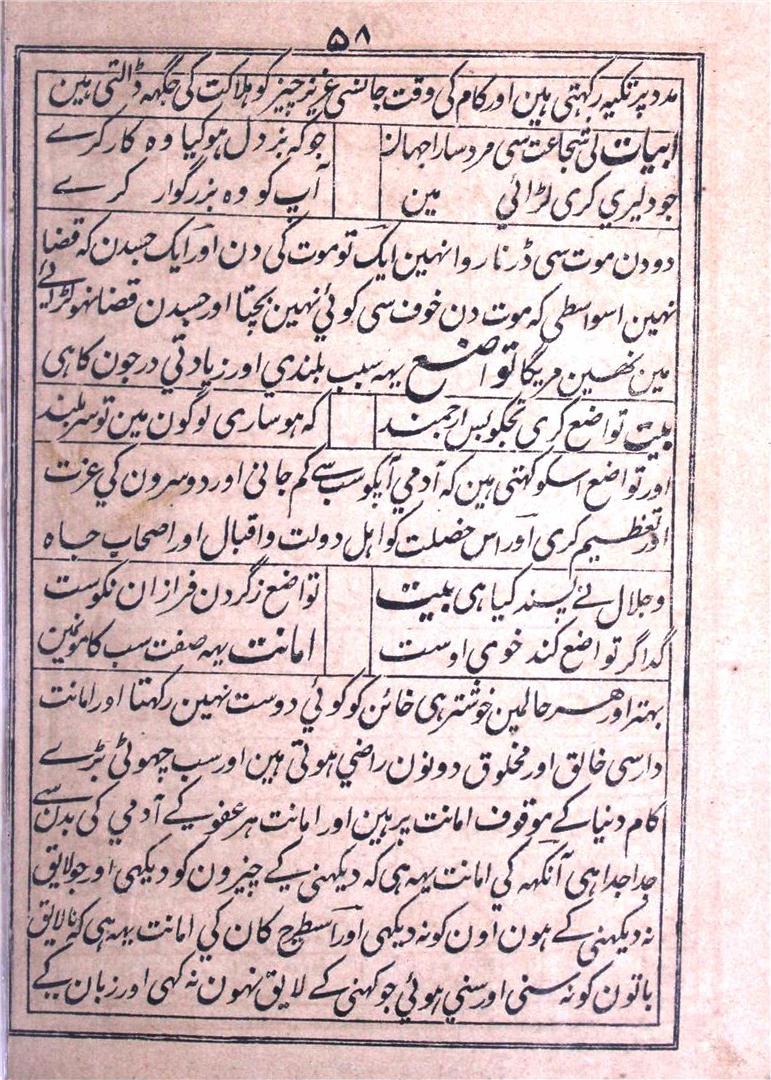 ۵۸
مدد پر تکیہ رکہتی ہین اور کام کی وقت جانسی عزیز چیز کو ہلاکت کی جگہہ ڈالتی ہین
ابیات لی شجاعت سی مرد سارا جہان جو کہ بزدل ہو کیا وہ کار کرے
جو دلیری کری لڑائی مین آپ کو وہ بزرگوار کرے
دو دن موت سی ڈرنا روا نہین ایک تو موت کی دن اور ایک جسدن کہ قضا
نہین اسواسطی کہ موت دن خوف سی کوئی نہین بچتا اور جسدن قضا نہو لڑائے
مین نہین مریگا تواضع یہہ سبب بلندی اور زیادتی درجون کا ہی
بیت تواضع کری تجکو بس ارجمند کہ ہو ساری لوگون مین تو سر بلند
اور تواضع اسکو کہتی ہین کہ آدمی آپکو سب سے کم جانی اور دوسرون کی عزت
اور تعظیم کری اور اس خصلت کو اہل دولت و اقبال اور اصحاب جاہ
و جلال نے پسند کیا ہی بیت تواضع ز گردن فرازان نکوست
گدا گر تواضع کند خوی اوست امانت یہہ صفت سب کامونمین
بہتر اور هر حالمین خوشتر ہی خائن کو کوئی دوست نہین رکہتا اور امانت
دار سی خالق اور مخلوق دونون راضی ہوتی ہین اور سب چہوٹی بڑے
کام دنیا کے موقوف امانت پر ہین اور امانت ہر عضو کے آدمی کی بدن سے
جدا جدا ہی آنکہہ کی امانت یہہ ہی کہ دیکہنی کے چیزون کو دیکہی اور جو لایق
نہ دیکہنی کے ہون اون کو نہ دیکہی اور اسطرح کان کی امانت یہہ ہی کہ نالایق
باتون کو نہ سنی اور سنی ہوئی جو کہنی کے لایق نہون نہ کہی اور زبان کے